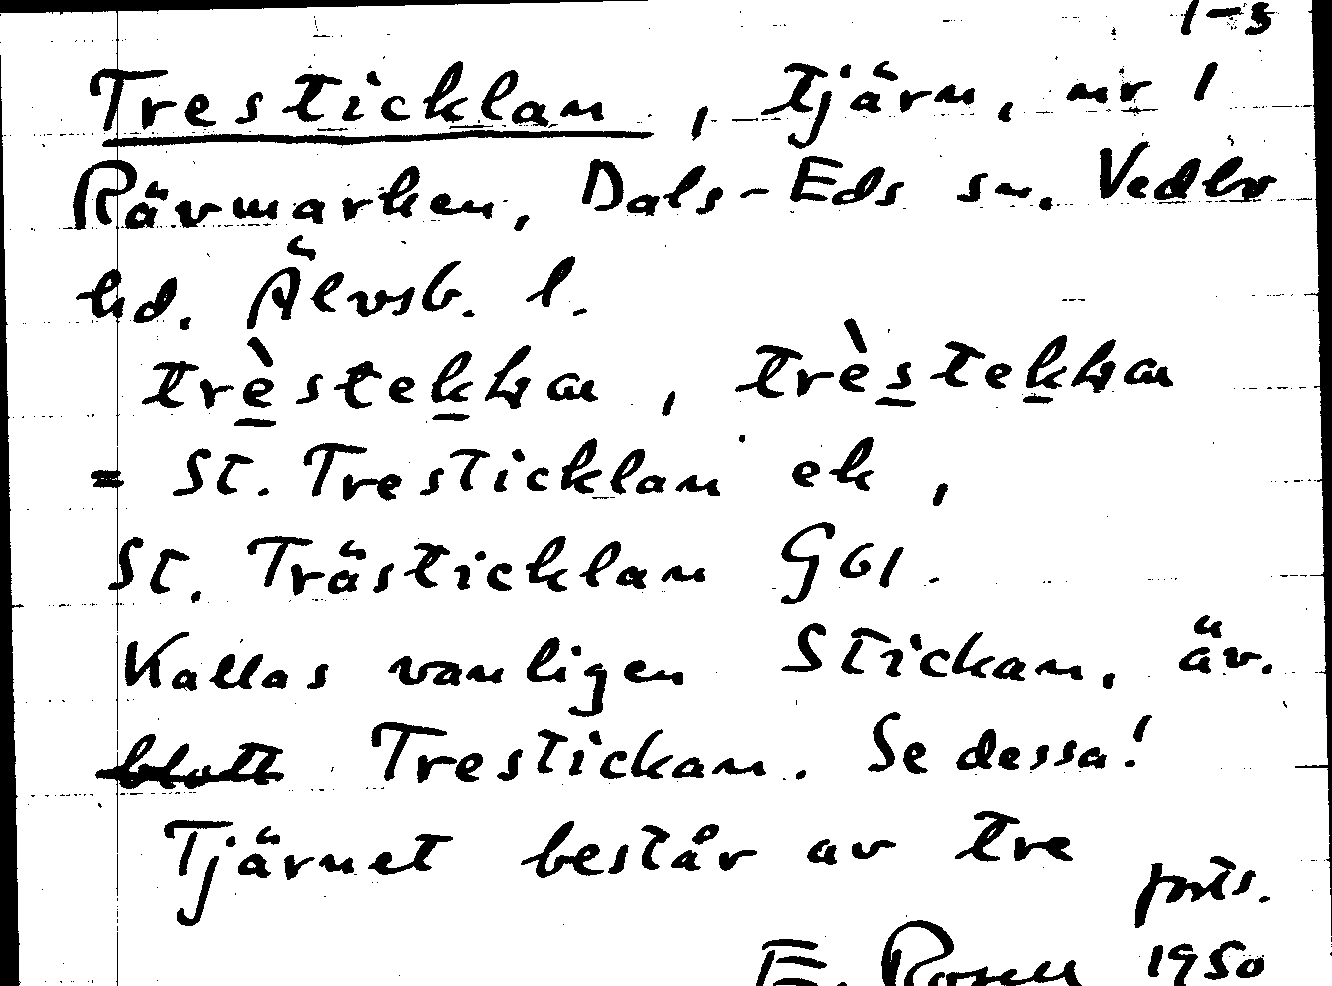 1-3
Tresticklan, tjärn, nr 1
Rävmarken, Dals-Eds sn. Vedbo
hd. Älvsb. l.
trèstekkɷa, trèstekkɷa
= St. Tresticklan ek,
St. Trästicklan G61.
Kallas vanligen Stickan, äv.
blott Trestickan. Se dessa!
Tjärnet består av tre
forts.
E. Rosell 1950